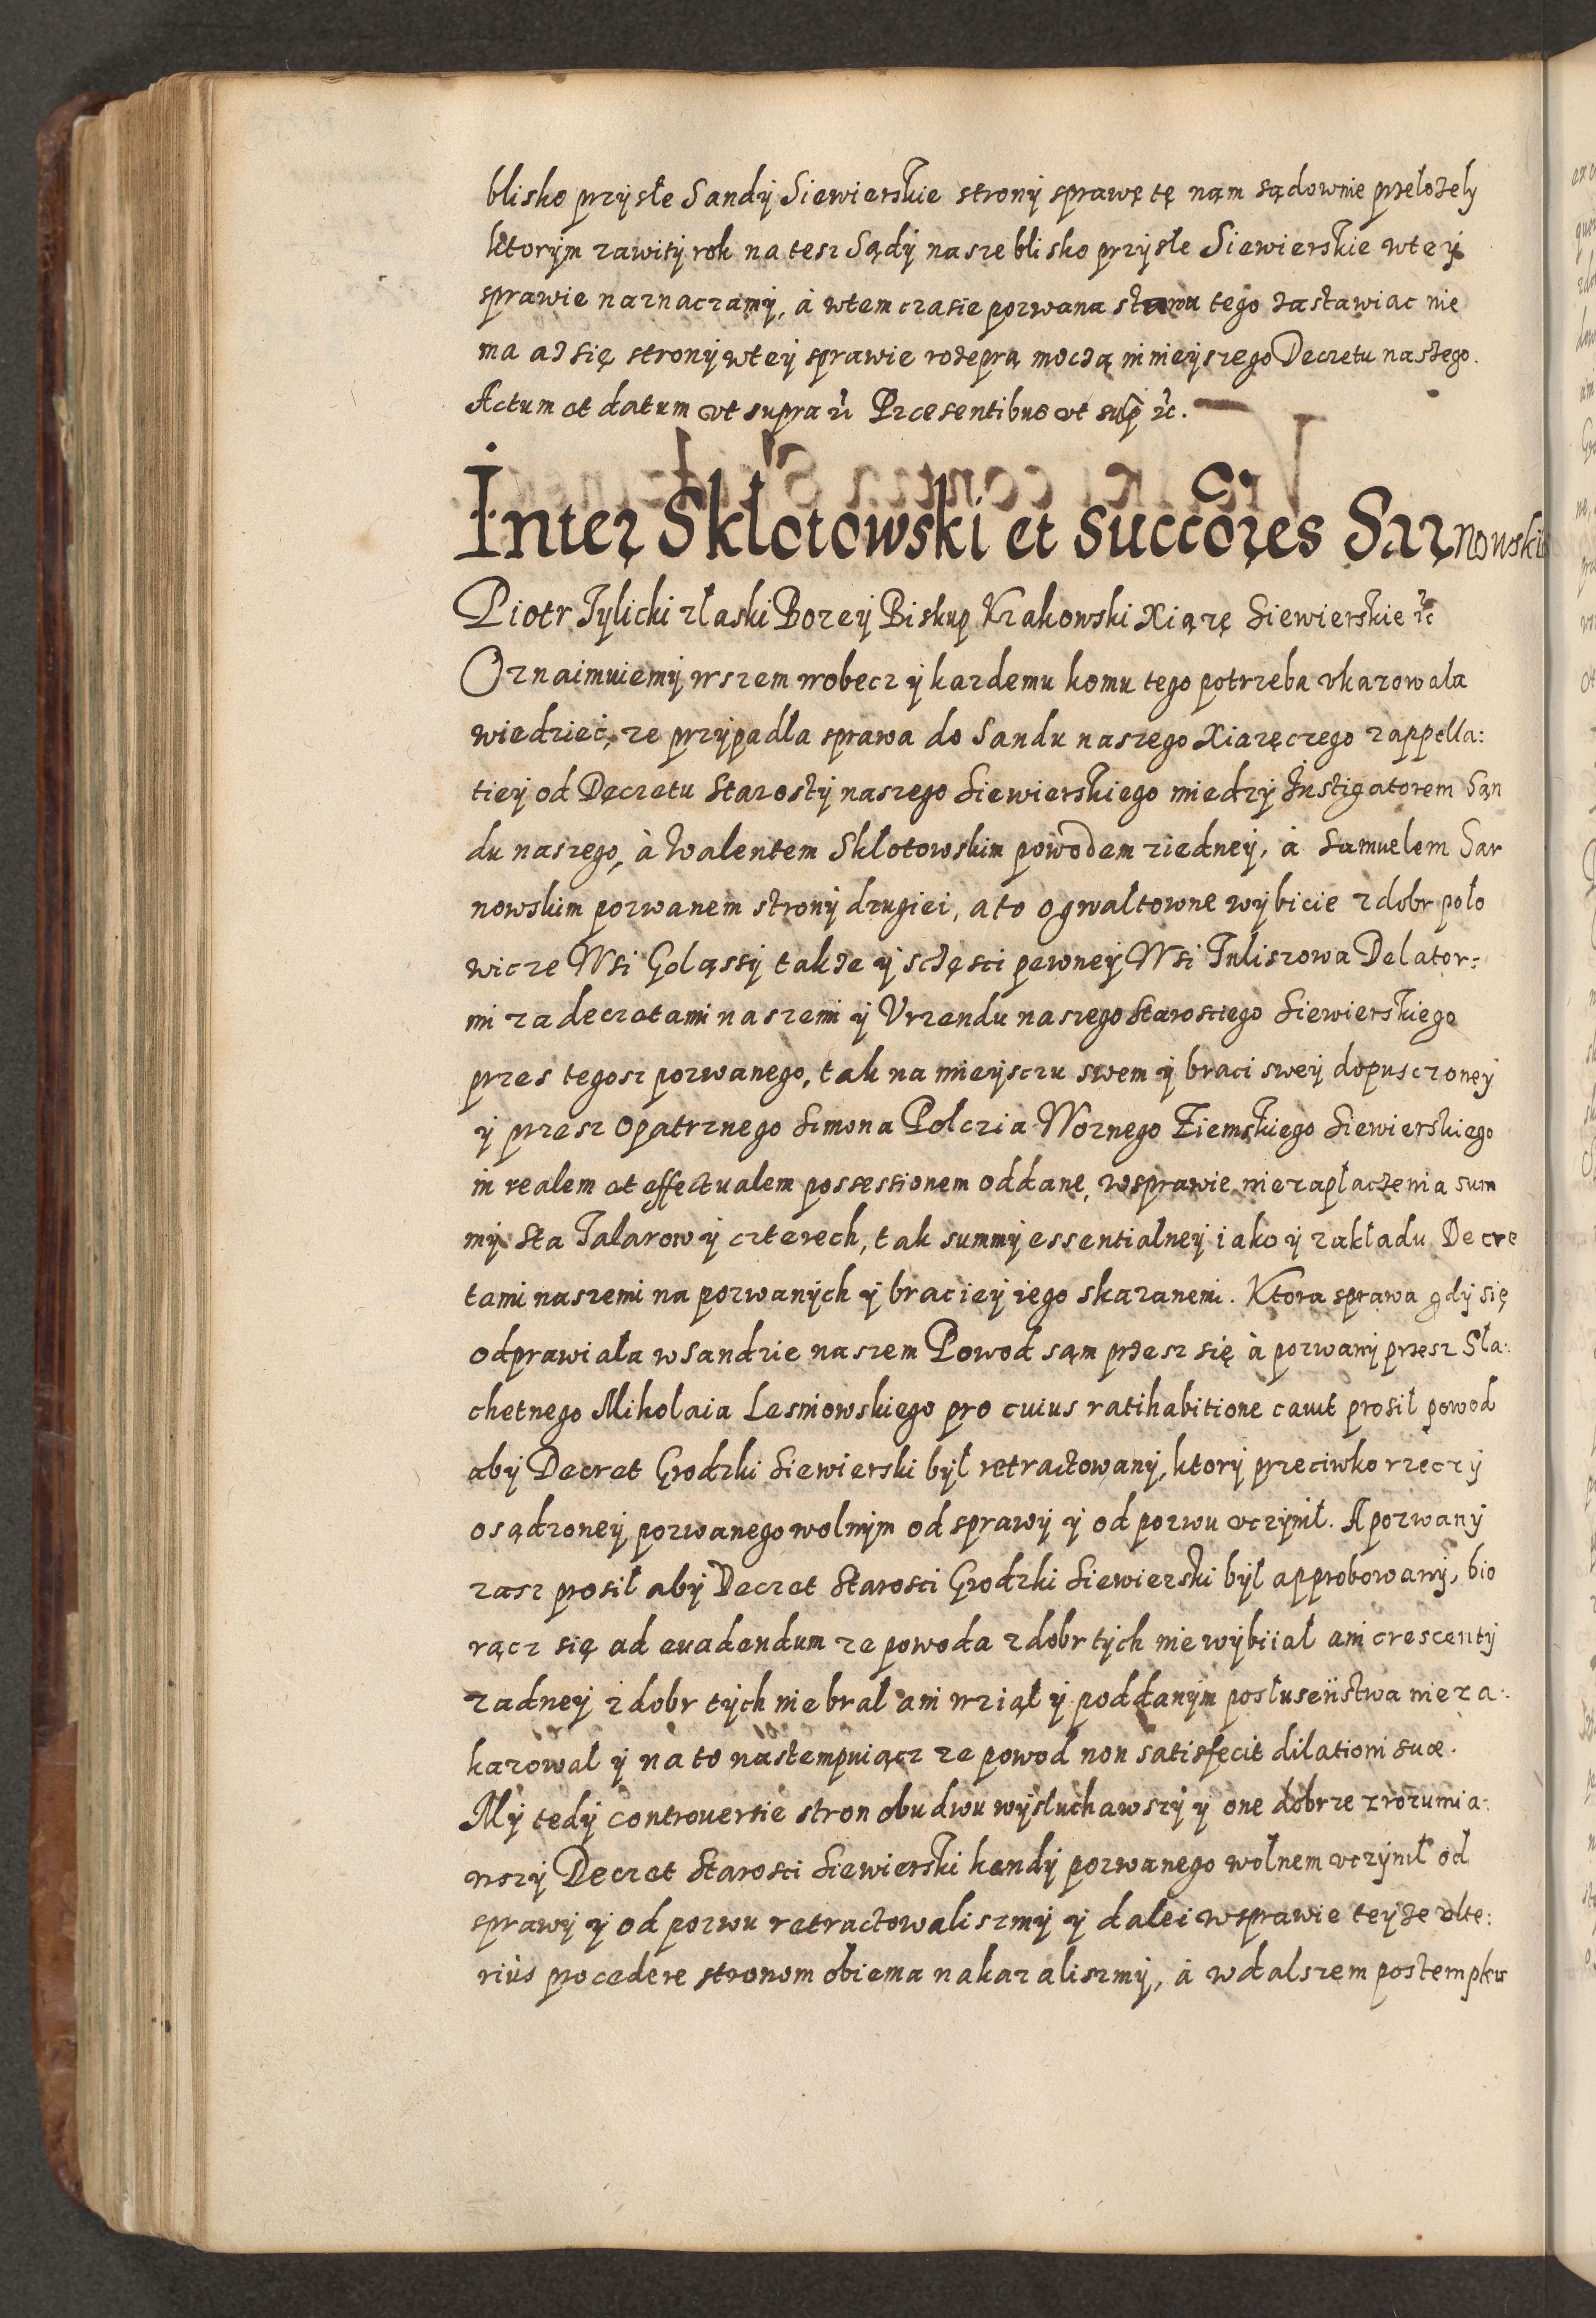 blisko przysłe Sandy Siewierskie strony sprawę tę nąm sądownie przelozely
ktorym zawity rok na tesz Sądy nasze blisko przysłe Siewierskie wtey
sprawie naznaczamy, à wtem czasie pozwana stawu tego zastawiac nie
ma az się strony wtey sprawie rozeprą moczą ninieyszego Decretu naszego.
Actum et datum vt supra &c Præsentibus vt sup &c.
Inter Sklotowski et Succores Sarnowski
Piotr Tylicki złaski Bozey Biskup Krakowski Xiązę Siewierskie &c
Oznaimuiemy wszem wobecz y kazdemu komu tego potrzeba vkazowala
wiedzieć, ze przypadla sprawa do Sandu naszego Xiazęczego zappella:
tiey od Decretu Starosty naszego Siewierskiego miedzy Instigatorem Sąn
du naszego, à Walentem Sklotowskim powodem ziedney, à Samuelem Sar
nowskim pozwanem strony drugiei, a to o gwaltowne wybicie zdobr polo
wicze Wsi Goląssy takze y sczęsci pewney Wsi Tuliszowa Delator:
mi za decretami naszemi y Vrzendu naszego Starosciego Siewierskiego
przes tegosz pozwanego, tak na mieysczu swem y braci swey dopusczoney
y przesz Opatrznego Simona Polczia Woznego Ziemskiego Siewierskiego
in realem et effectualem possessionem oddane, wsprawie niezaplaczenia sum
my Sta Talarow y czterech, tak summy essentialney iako y zakladu Decre
tami naszemi na pozwanych y braciey iego skazanemi. Ktora sprawa gdy się
odprawiala wsandzie naszem Powod sąm przesz się à pozwany przesz Sla:
chetnego Mikolaia Lesniowskiego pro cuius ratihabitione cauit prosil powod
aby Decret Grodzki Siewierski był retractowany, ktory przeciwko rzeczy
osądzoney pozwanego wolnym od sprawy y od pozwu vczynił. A pozwany
zasz prosił aby Decret Starosci Grodzki Siewierski był approbowany, bio
rącz się ad euadendum ze powoda zdobr tych nie wybiiał ani crescenty
zadney zdobr tych nie brał ani wziął y poddanym posluseństwa nieza:
kazował y na to nastempuiącz ze powod non satisfecit dilationi suæ.
My tedy controuersie stron obudwu wysluchawszy y one dobrze zrozumia:
wszy Decret Starosci Siewierski kendy pozwanego wolnem vczynił od
sprawy y od pozwu retractowaliszmy y dalei wsprawie teyze vlte:
rius procedere stronom obiema nakazaliszmy, à wdalszem postempku